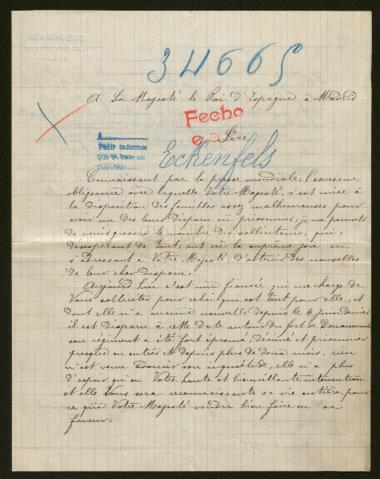 34665
A Sa Majesté le Roi d'Espagne à Madrid
Fecho
Sire
Eckenfels
Pedir informes
Connaissant par la presse mondiale l'excessive
obligeance avec laquelle Votre Majesté, s'est mise à
la disposition des familles assez malheureuses pour
avoir un des leurs disparu ou prisonnier, je me permets
de venir grossir le nombre des solliciteurs, qui,
désespérant de tout, ont eu la suprême joie en
s'adressant à Votre Majesté, d'obtenir des nouvelles
de leur cher disparu.
Aujourd'hui c'est une fiancée qui me charge de
Vous solliciter pour celui qui est tout pour elle, et
dont elle n'a aucune nouvelle depuis le 4 juin dernier
il est disparu à cette date autour du fort de Douaumont
son régiment a été fort éprouvé, décimé et prisonnier
presque en entier et depuis plus de deux mois, rien
n'est venu adoucir son inquiétude, elle n'a plus
d'espoir qu'en Votre haute et bienveillante intervention
et elle Vous sera reconnaissante sa vie entière, pour
ce que Votre Majesté voudra bien faire en sa
faveur.